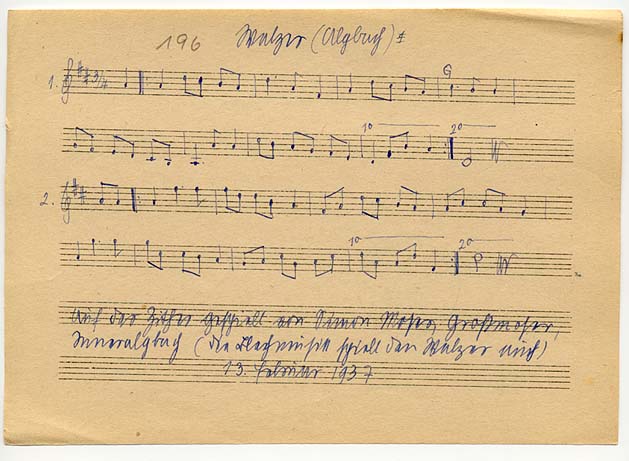 196 Walzer (Algbach) 1
1. 3/4 G
1º 2º
2.
1º 2º
Auf der Zither gespielt von Simon Moser, Großmoser,
Inneralgbach (die Blechmusik spielt den Walzer auch)
13. Februar 1937